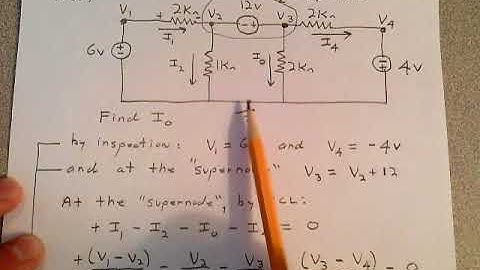 V₁ + 2KΩ V₂ 12v V₃ 2KΩ V₄
I₁ I₄
6v I₂ 1KΩ I₀ 2KΩ 4v
Find I₀
by inspection: V₁ = 6 and V₄ = -4v
and at the "supernode" V₃ = V₂ + 12
At the "supernode", by KCL:
+ I₁ - I₂ - I₀ - I₄ = 0
+ (V₁-V₂) - V₂ - V₃ (V₃-V₄) = 0